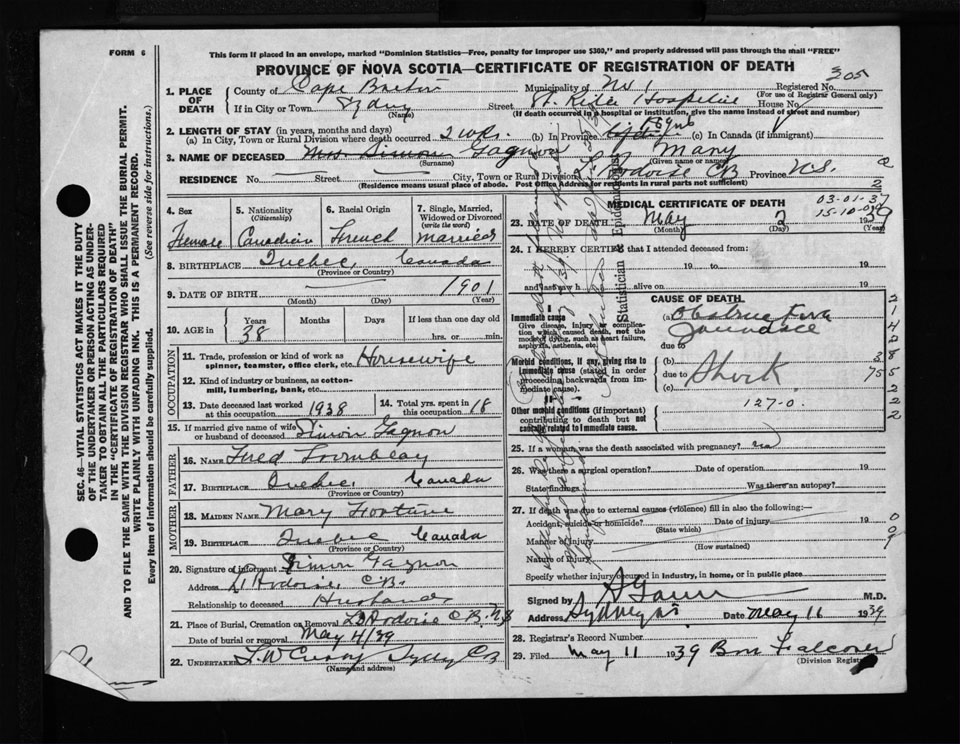 FORM 6
This form if placed in an envelope, marked "Dominion Statistics—Free, penalty for improper use $300," and properly addressed will pass through the mail "FREE"
PROVINCE OF NOVA SCOTIA—CERTIFICATE OF REGISTRATION OF DEATH
1. PLACE OF DEATH
County of Cape Breton Municipality of No 1 Registered No. 205
(For use of Registrar General only)
If in City or Town Sydney Street St. Rita Hospital House No.
(Name) (If death occurred in a hospital or institution, give name instead of street and number)
2. LENGTH OF STAY (in years, months and days)
(a) In City, Town or Rural Division where death occurred 2 wks. (b) In Province (c) In Canada (if immigrant)
3. NAME OF DECEASED Mrs. Simon Gagnon Mary
(Surname) (Given name or names)
RESIDENCE No. Street City, Town or Rural Division L'Ardoise CB Province N.S.
(Residence means usual place of abode. Post Office Address for residents in rural parts not sufficient)
4. Sex 5. Nationality (Citizenship) 6. Racial Origin 7. Single, Married, Widowed or Divorced (write the word)
Female Canadian French Married
8. BIRTHPLACE Quebec, Canada
(Province or Country)
9. DATE OF BIRTH 1901
(Month) (Day) (Year)
10. AGE in Years Months Days If less than one day old
38 hrs. or min.
OCCUPATION
11. Trade, profession or kind of work as spinner, teamster, office clerk, etc. Housewife
12. Kind of industry or business, as cotton-mill, lumbering, bank, etc.
13. Date deceased last worked at this occupation 1938 14. Total yrs. spent in this occupation 18
15. If married give name of wife or husband of deceased Simon Gagnon
FATHER
16. NAME Fred Trumblay
17. BIRTHPLACE Quebec, Canada
(Province or Country)
MOTHER
18. MAIDEN NAME Mary Fortune
19. BIRTHPLACE Quebec Canada
(Province or Country)
20. Signature of informant Simon Gagnon
Address L'Ardoise, C.B.
Relationship to deceased Husband
21. Place of Burial, Cremation or Removal L'Ardoise C.B. N.S
Date of burial or removal May 4/39
22. UNDERTAKER L.W Curry Sydney CB
(Name and address)
MEDICAL CERTIFICATE OF DEATH
03-01-37
15-10-04
23. DATE OF DEATH May 2 1939
(Month) (Day) (Year)
24. I HEREBY CERTIFY that I attended deceased from:
19 to 19
and last saw h alive on 19
CAUSE OF DEATH
Immediate cause (a) Obstructive Jaundice
Give disease, injury or complication which caused death, not the mode of dying, such as heart failure, asphyxia, asthenia, etc.
due to
Morbid conditions, if any, giving rise to immediate cause (stated in order proceeding backwards from immediate cause).
(b)
due to Shock
(c)
127-0.
Other morbid conditions (if important) contributing to death but not causally related to immediate cause.
25. If a woman, was the death associated with pregnancy?
26. Was there a surgical operation? Date of operation 19
State findings Was there an autopsy?
27. If death was due to external causes (violence) fill in also the following:—
Accident, suicide or homicide? Date of injury 19
(State which)
Manner of injury
(How sustained)
Nature of injury
Specify whether injury occurred in industry, in home, or in public place
Signed by M.D.
Address Sydney NS Date May 11 1939
28. Registrar's Record Number
29. Filed May 11 1939
(Division Registrar)
SEC. 46—VITAL STATISTICS ACT MAKES IT THE DUTY
OF THE UNDERTAKER OR PERSON ACTING AS UNDER-
TAKER TO OBTAIN ALL THE PARTICULARS REQUIRED
IN THE "CERTIFICATE OF REGISTRATION OF DEATH"
AND TO FILE THE SAME WITH THE DIVISION REGISTRAR WHO SHALL ISSUE THE BURIAL PERMIT.
WRITE PLAINLY WITH UNFADING INK. THIS IS A PERMANENT RECORD.
Every item of information should be carefully supplied. (See reverse side for instructions.)